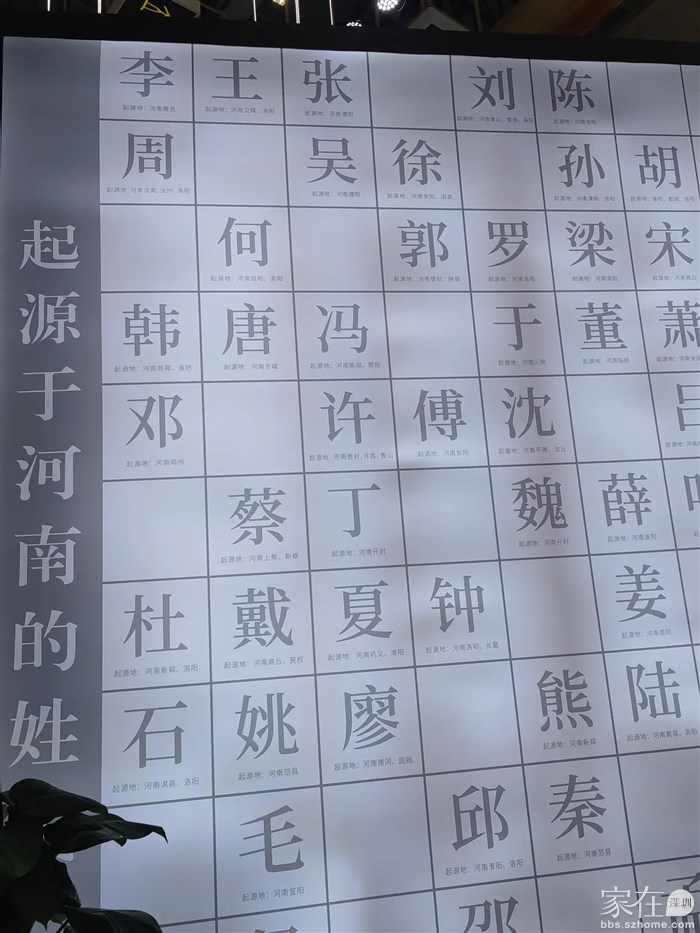 起源于河南的姓
李 王 张 刘 陈
起源地：河南鹿邑 起源地：河南卫辉、洛阳 起源地：河南濮阳
周 吴 徐 孙 胡
起源地：河南汝南、汝州、洛阳 起源地：河南濮阳
何 郭 罗 梁 宋
起源地：河南信阳、洛阳 起源地：河南洛阳 起源地：河南洛阳
韩 唐 冯 于 董 萧
起源地：河南新郑、洛阳 起源地：河南方城 起源地：河南新郑、荥阳 起源地：河南沁阳 起源地：河南临颍
邓 许 傅 沈 吕
起源地：河南邓州 起源地：河南登封、许昌、鲁山 起源地：河南安阳 起源地：河南平舆、沈丘
蔡 丁 魏 薛
起源地：河南上蔡、新蔡 起源地：河南开封 起源地：河南开封 起源地：河南洛阳
杜 戴 夏 钟 姜
起源地：河南新郑、洛阳 起源地：河南商丘、民权 起源地：河南巩义、淮阳 起源地：河南洛阳、长葛
石 姚 廖 熊 陆
起源地：河南淇县、洛阳 起源地：河南范县 起源地：河南唐河、固始 起源地：河南新郑 起源地：河南嵩县、洛阳
毛 邱 秦
起源地：河南宜阳 起源地：河南淮阳、洛阳 起源地：河南范县
邵
家在深圳
bbs.szhome.com